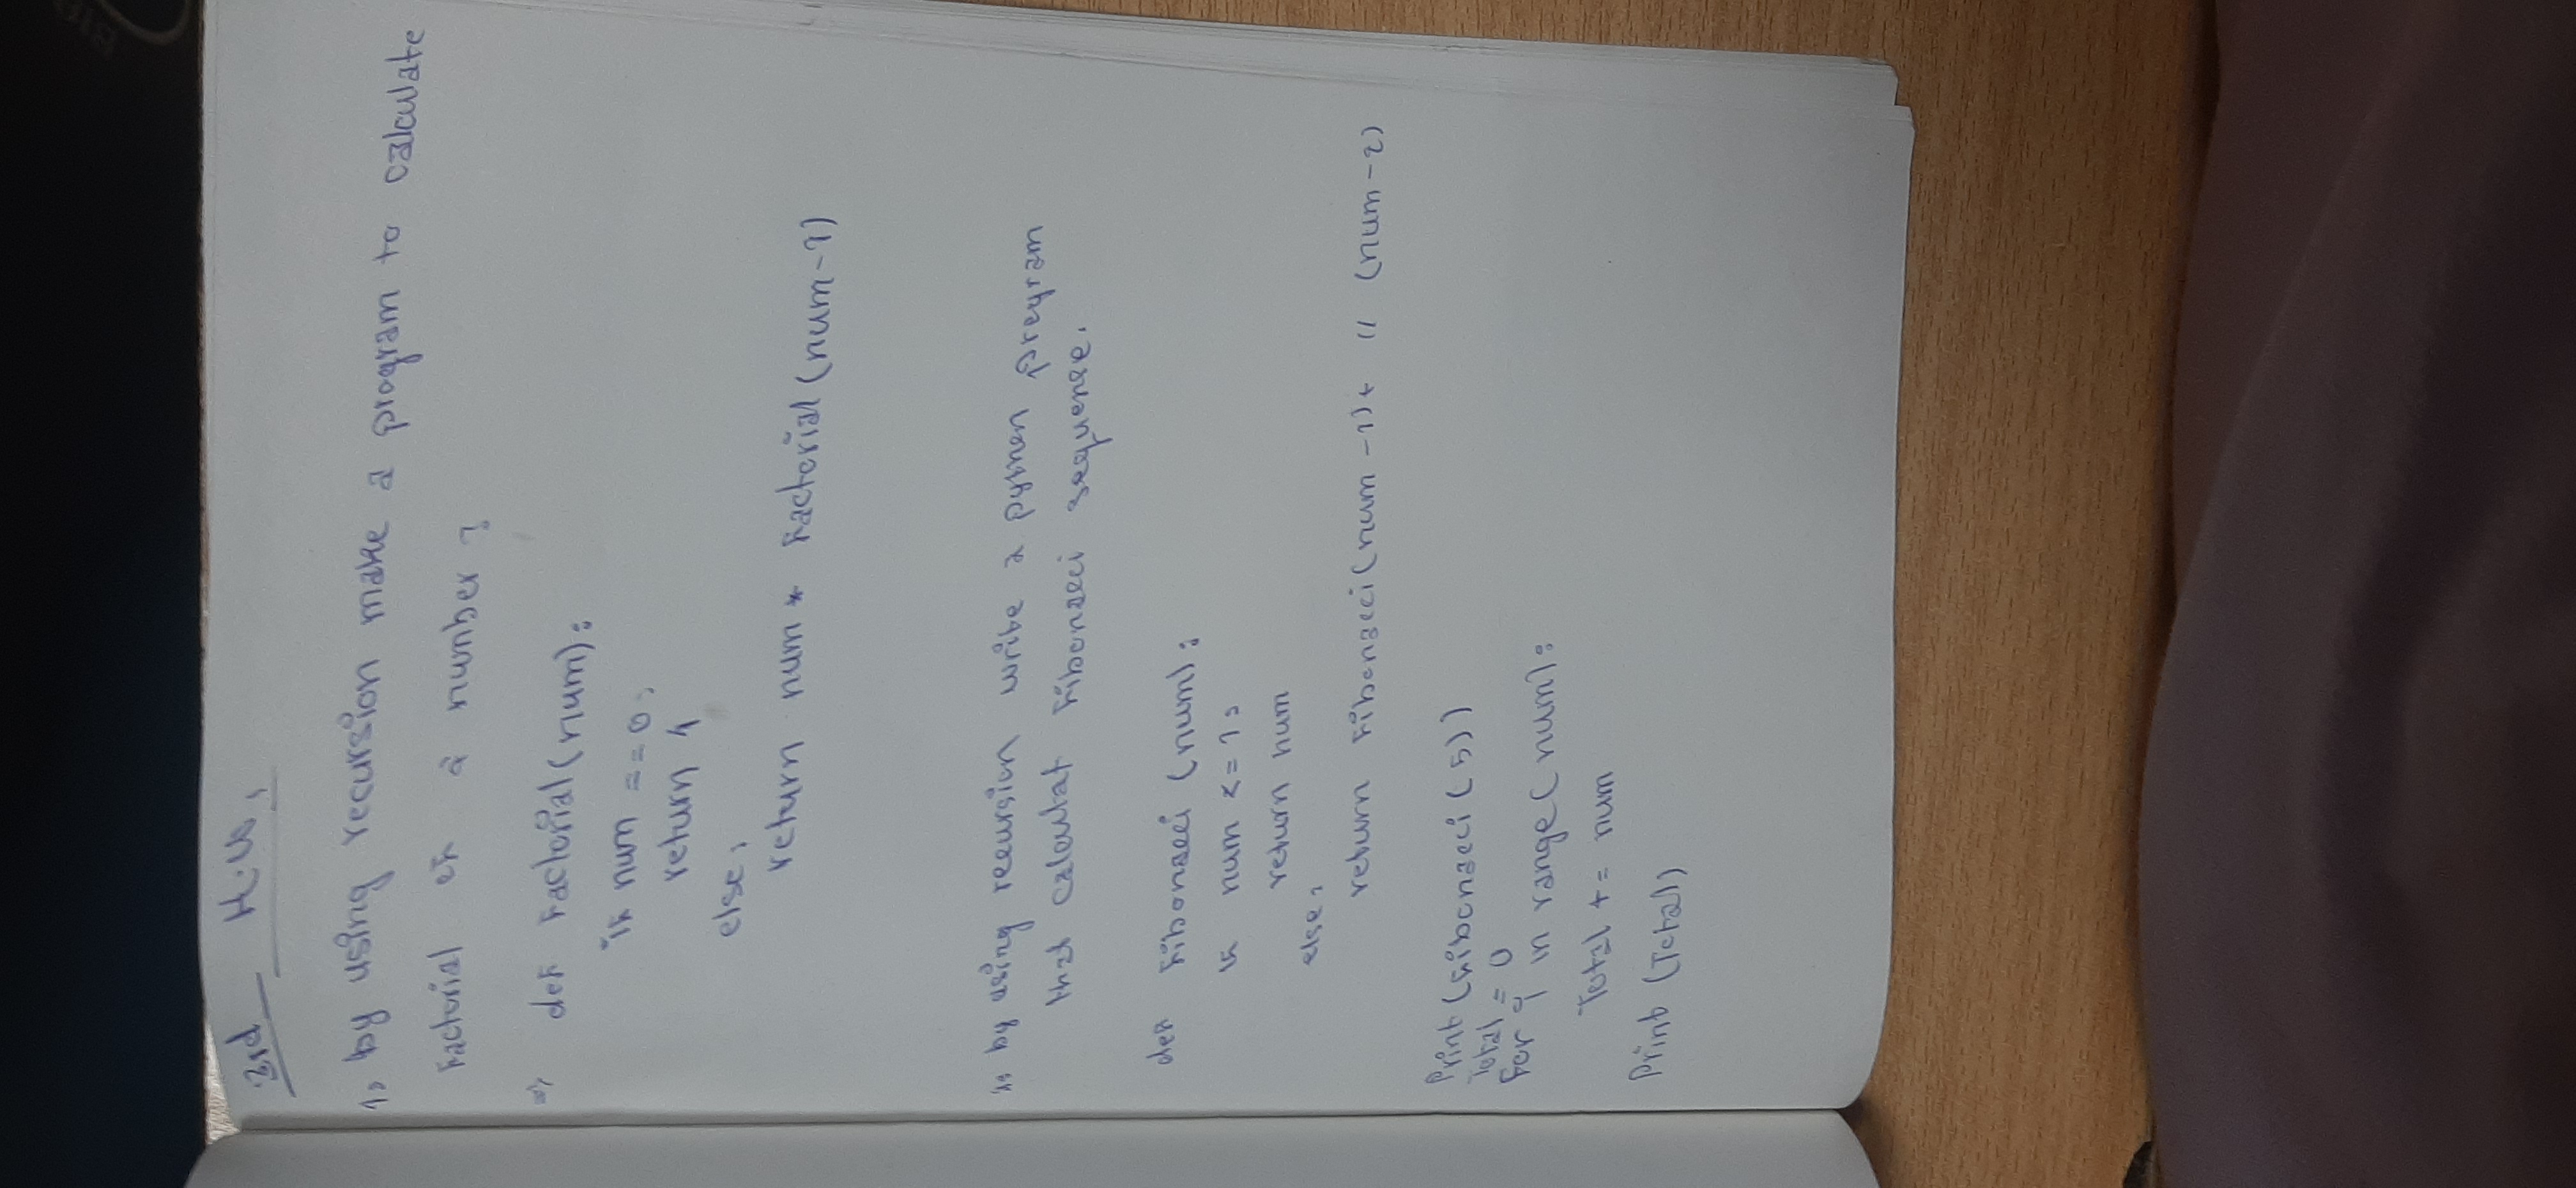 3rd H.W,
1, by using recursion make a program to calculate
Factorial of a number ?
⇒ def Factorial(num):
if num == 0:
return 1
else:
return num * Factorial(num-1)
by using recursion write a python program
that calculat Fibonacci sequense.
def Fibonacci (num):
if num <= 1:
return num
else:
return Fibonacci(num -1)+ 〃 (num-2)
Print(Fibonacci(5))
Total = 0
For i in range(num):
Total += num
Print (Total)